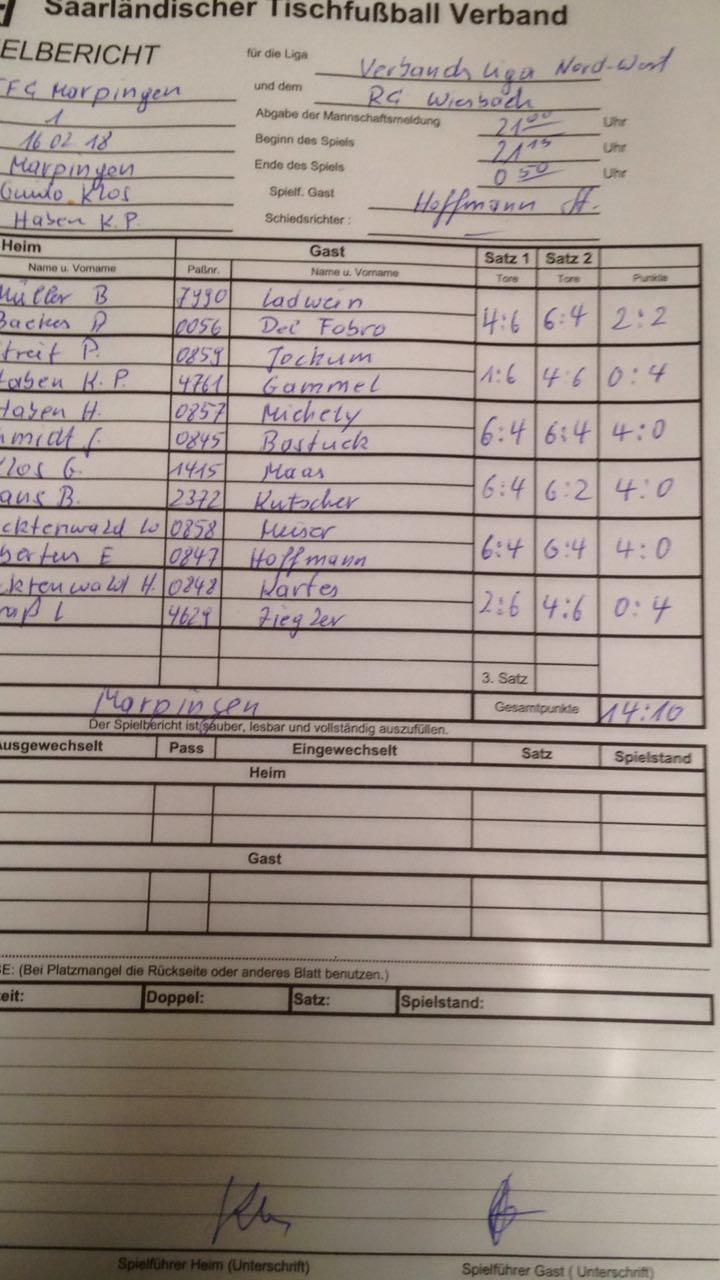 Saarländischer Tischfußball Verband
ELBERICHT
für die Liga Verbandsliga Nord-West
FG Marpingen und dem RG Wiesbach
1 Abgabe der Mannschaftsmeldung 21 00 Uhr
16 02 18 Beginn des Spiels 21 15 Uhr
Marpingen Ende des Spiels 0 50 Uhr
Guido Klos Spielf. Gast Hoffmann St.
Haben K.P. Schiedsrichter : —
Heim Gast Satz 1 Satz 2
Name u. Vorname Paßnr. Name u. Vorname Tore Tore Punkte
Müller B 7990 Ladwein
Backes 0056 Dei Fabro 4:6 6:4 2:2
treit P. 0859 Jochum
Haben K. P. 4761 Gammel 1:6 4:6 0:4
Haben H. 0857 Michely
hmidt J. 0845 Bastuck 6:4 6:4 4:0
Klos G. 1415 Maas
aus B. 2372 Kutscher 6:4 6:2 4:0
cktenwald W 0858 Meiser
berten E 0847 Hoffmann 6:4 6:4 4:0
cktenwald H. 0848 Kartes
raß L 4629 Ziegler 2:6 4:6 0:4
3. Satz
Marpingen Gesamtpunkte 14:10
Der Spielbericht ist sauber, lesbar und vollständig auszufüllen.
Ausgewechselt Pass Eingewechselt Satz Spielstand
Heim
Gast
SE: (Bei Platzmangel die Rückseite oder anderes Blatt benutzen.)
eit: Doppel: Satz: Spielstand:
Spielführer Heim (Unterschrift) Spielführer Gast ( Unterschrift)